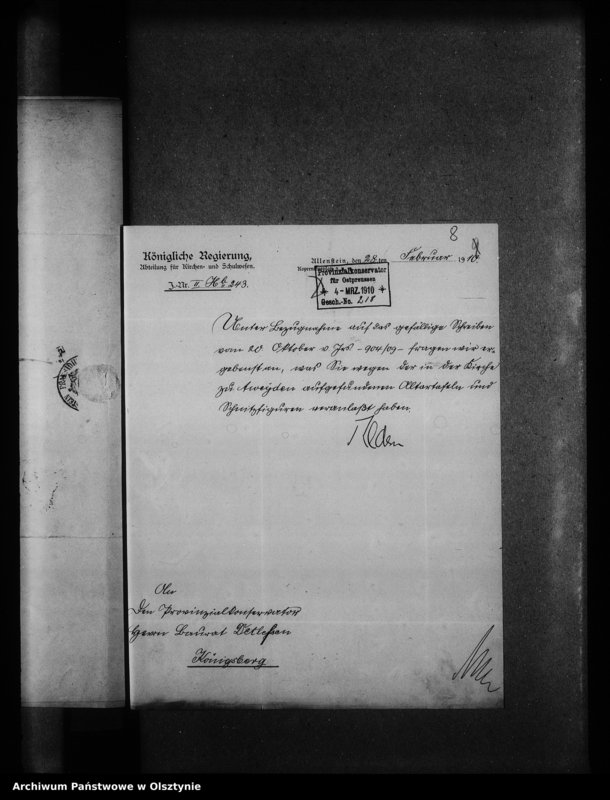 8
Königliche Regierung,
Abteilung für Kirchen- und Schulwesen.
J.-Nr. II 243.
Allenstein, den 28 ten Februar 1910
Provinzialkonservator
für Ostpreussen
4 - MRZ. 1910
Gesch.-No. 218
Unter Bezugnahme auf das gefällige Schreiben
vom 20 Oktober v. Jrs - 904/09 - fragen wir er-
gebenst an, was Sie wegen der in der Kirche
zu Aweyden aufgefundenen Altartafeln und
Schnitzfiguren veranlaßt haben.
An
Den Provinzialkonservator
Herrn Baurat Dethlefsen
Königsberg
Archiwum Państwowe w Olsztynie